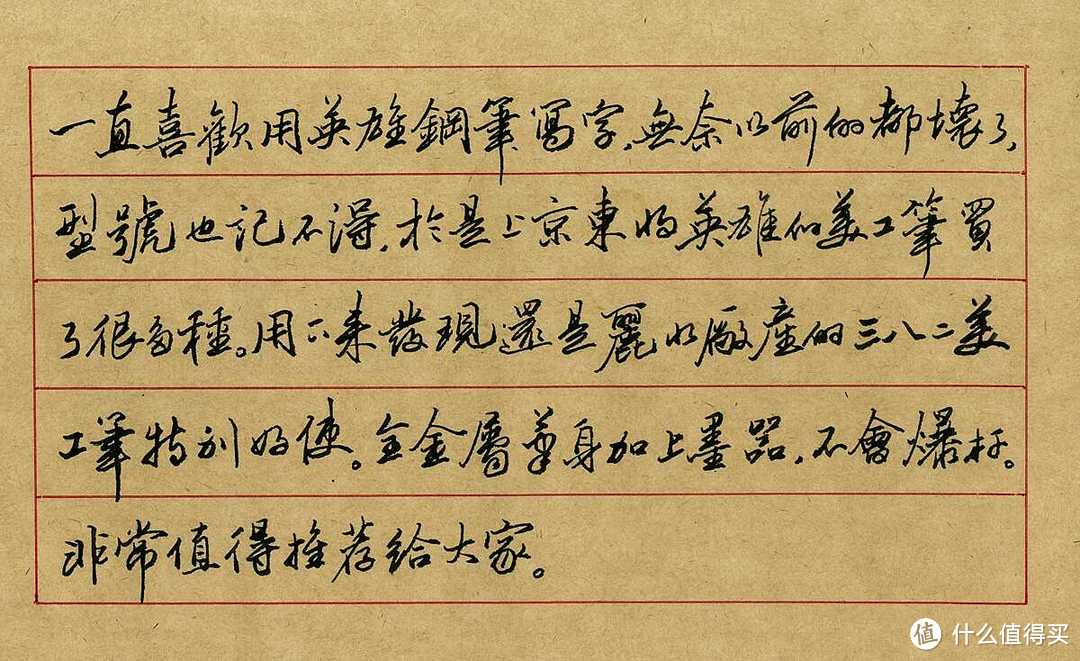 一直喜歡用英雄鋼筆寫字,無奈以前的都壞了,
型號也記不得,於是上京東將英雄的美工筆買
了很多種。用下來發現還是麗水廠產的三八二美
工筆特別好使。全金屬筆身加上墨器,不會爆杆。
非常值得推荐給大家。
值 什么值得买